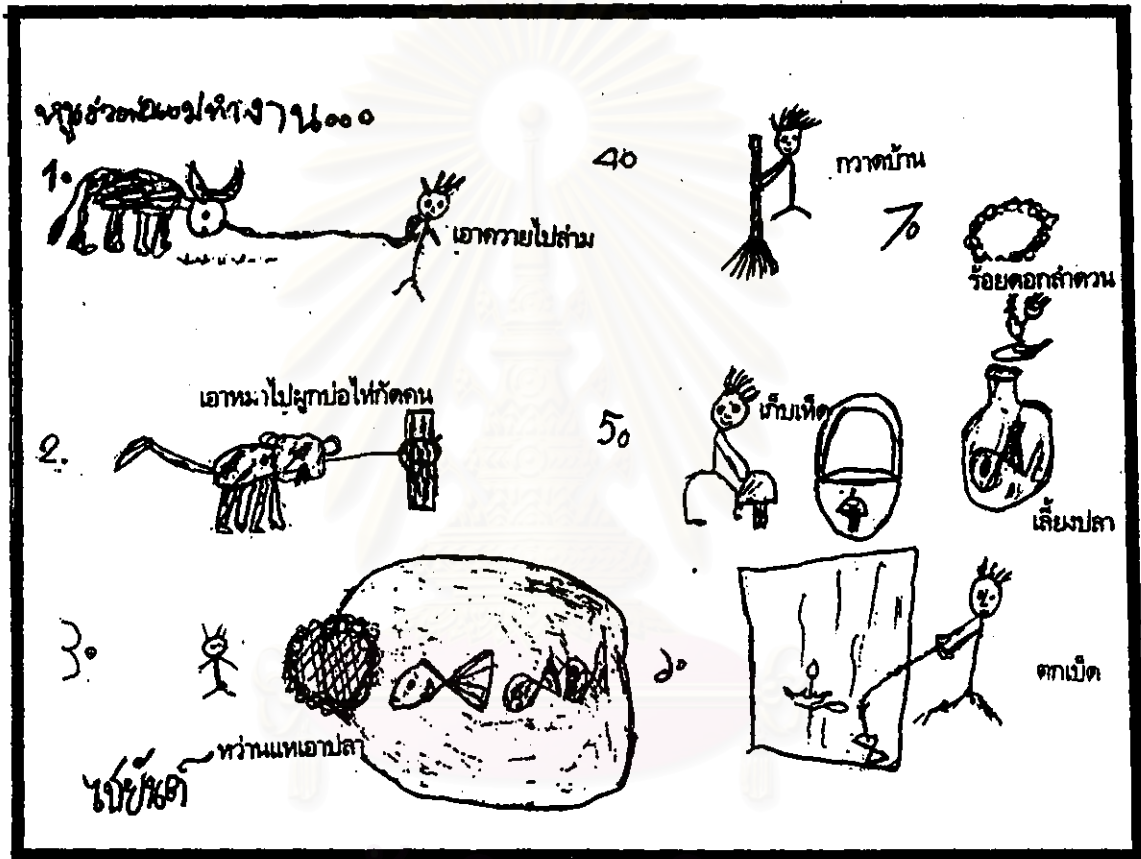 หนูช่วยพ่อแม่ทำงาน...
1.
เอาควายไปล่าม
2.
เอาหมาไปผูกบ่อไห่กัดคน
3.
หว่านแหเอาปลา
ไชยันต์
4.
กวาดบ้าน
5.
เก็บเห็ด
6.
ตกเบ็ด
7.
ร้อยดอกลำดวน
เลี้ยงปลา